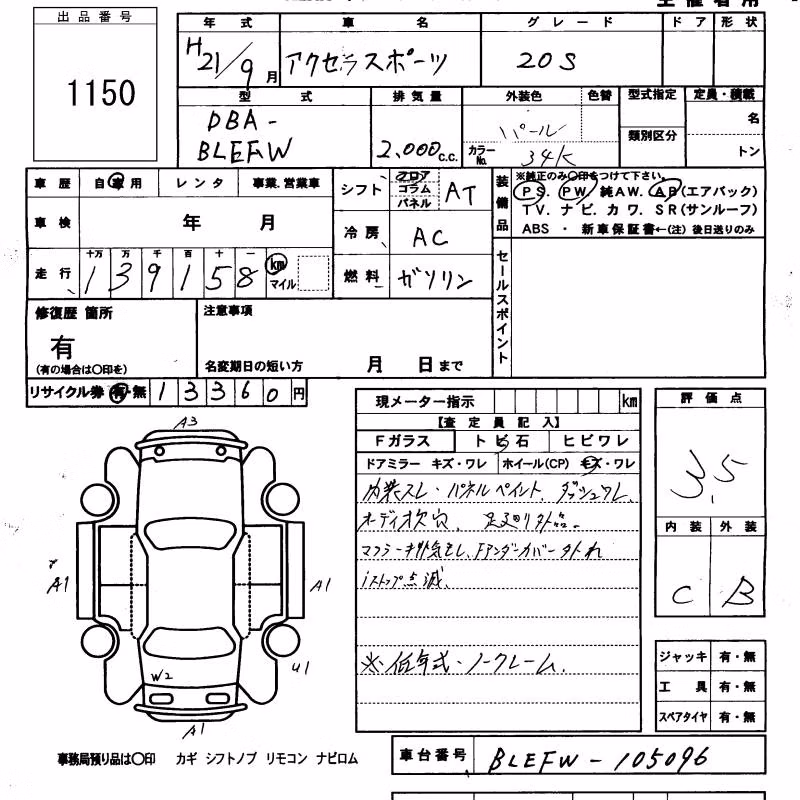 出品番号
1150
年式 車名 グレード ドア 形状
H21/9月 アクセラスポーツ 20S
型式 排気量 外装色 色替 型式指定 定員・積載
DBA-BLEFW 2,000c.c. パール 類別区分 名
カラーNo. 34K トン
車歴 自家用 レンタ 事業.営業車
車検 年 月
走行 十万 万 千 百 十 一
139158 km マイル
シフト フロア コラム パネル AT
冷房 AC
燃料 ガソリン
装備品 ※純正のみ〇印をつけて下さい。
PS. PW 純AW. AB(エアバック)
TV. ナビ. カワ. SR(サンルーフ)
ABS ・ 新車保証書←(注) 後日送りのみ
セールスポイント
修復歴 箇所
有
(有の場合は〇印を)
注意事項
名変期日の短い方 月 日まで
リサイクル券 有・無 13360円
現メーター指示 km
【査定員記入】
Fガラス トビ石 ヒビワレ
ドアミラー キズ・ワレ ホイール(CP) キズ・ワレ
内装スレ・パネルペイント ダッシュワレ、
オーディオ欠穴、足廻り外品。
マフラー排気モレ、Fアンダーカバー外れ
iストップ点滅、
※低年式・ノークレーム.
評価点
3.5
内装 外装
C B
A3
A1
A1
W2
U1
A1
ジャッキ 有・無
工具 有・無
スペアタイヤ 有・無
事務局預り品は〇印 カギ シフトノブ リモコン ナビロム
車台番号 BLEFW-105096